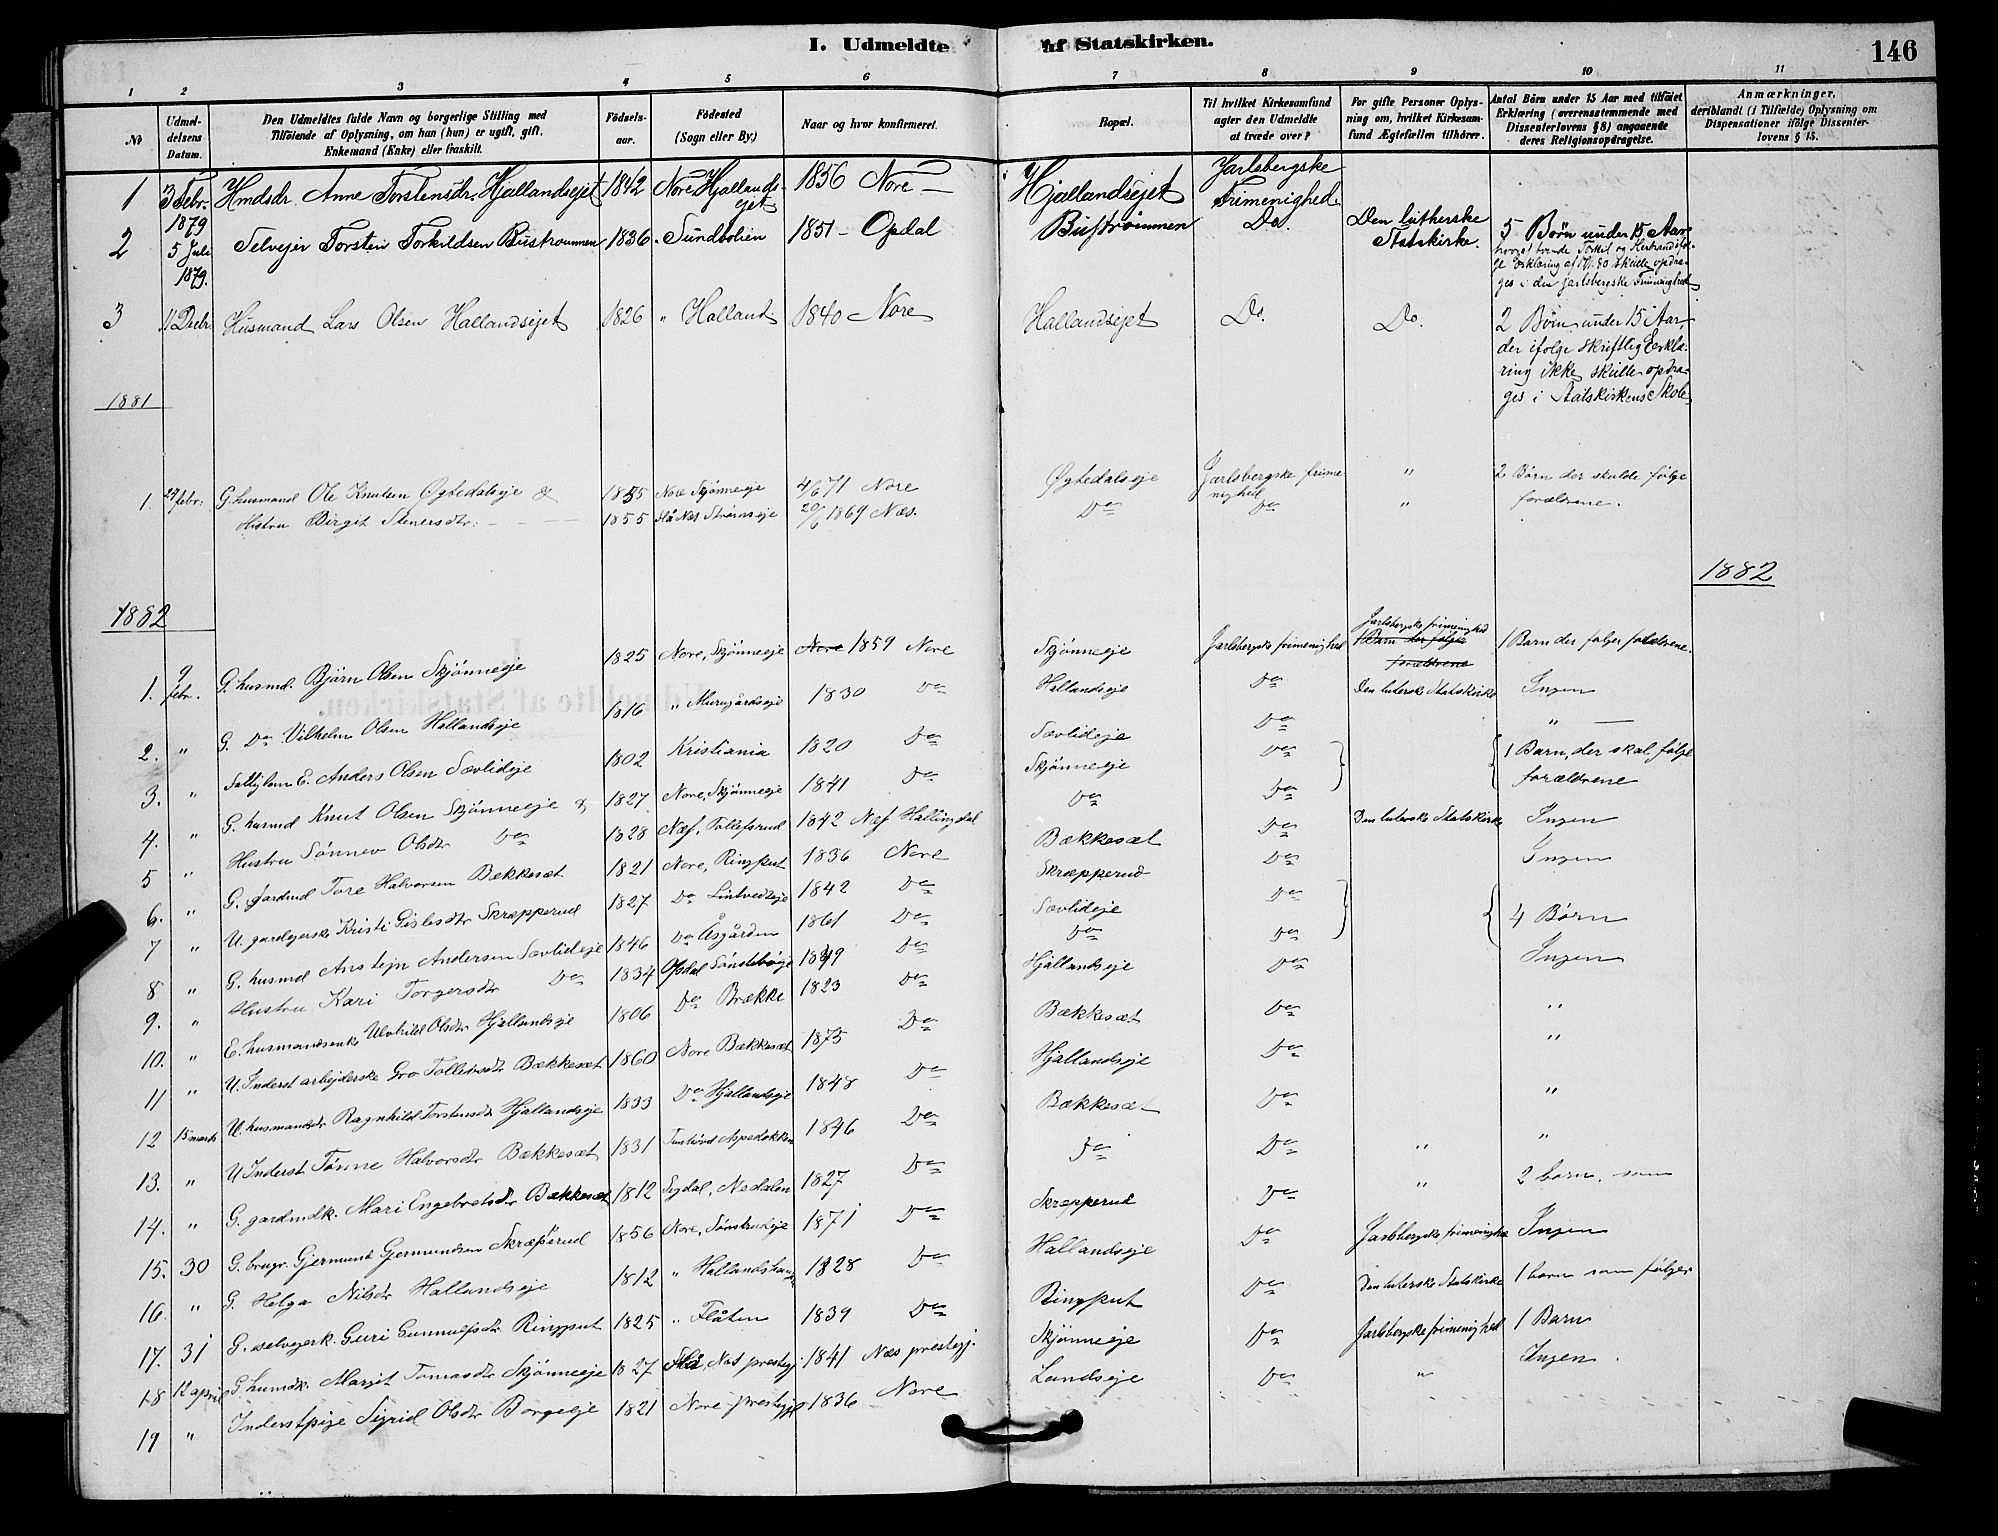 I. Udmeldte af Statskirken. 146
1 2 3 4 5 6 7 8 9 10 11
№ Udmeldelsens Datum. Den Udmeldtes fulde Navn og borgerlige Stilling med Tilföiende af Oplysning, om han (hun) er ugift, gift, Enkemand (Enke) eller fraskilt. Födselsaar. Födested (Sogn eller By.) Naar og hvor konfirmeret. Bopæl. Til hvilket Kirkesamfund agter den Udmeldte at træde over? For gifte Personer Oplysning om, hvilket Kirkesamfund Ægtefællen tilhörer. Antal Börn under 15 Aar med tilföiet Erklæring (overensstemmende med Dissenterlovens § 8) angaaende deres Religionsopdragelse. Anmærkninger, deriblandt (i Tilfælde) Oplysning om Dispensationer ifölge Dissenterlovens § 15.
1 3 Febr. 1879 Hmdsdr. Anne Torstensdr. Hjallandsejet 1842 Nore Hjallandsejet 1856 Nore — Hjallandsejet Jarlsbergske Frimenighed
2 5 Juli 1879. Selvejer Torsten Torkildsen Bustrømmen 1836 " Sundbolien 1851 – Opdal Bustrømmen Do. Den lutherske Statskirke. 5 Børn under 15 Aar,
ges i den jarlsbergske Frimenighed
3 11 Decbr. Husmand Lars Olsen Hallandsejet 1826 " Halland 1840 Nore Hallandsejet Do. Do. 2 Børn under 15 Aar,
der ifølge skriftlig Erklæ-
ring ikke skulle opdra-
ges i Statskirkens Skole
1881
1. 24 febr. G. husmand Ole Knutsen Øgtedalseje & 1855 Nore Skjønneeje 4/6 71 Nore Øgtedalseje Jarlsbergske frimenighed " 2 Børn der skulde følge
Hustru Birgit Stenersdtr. 1855 Flå Nes Strømseje 20/6 1869 Næs. Do Do " forældrene.
1882
1882
1. 9 febr. G. husmd. Bjørn Olsen Skjønneeje 1825 Nore, Skjønneeje Nore 1859 Nore Skjønneje Jarlsbergske frimenighed Jarlsbergske frimenighed 1 Barn der følger forældrene 1 Barn der følger forældrene.
2. " G. Do Vilhelm Olsen Hallandseje 1816 " Murugårdseje 1830 Do Hallandseje Do Den luterske Statskirke Ingen
3. " E. Anders Olsen Sævlideje 1802 Kristiania 1820 Do Sævlideje Do " —
4. " G. husmd Knut Olsen Skjønneeje & 1827 Nore, Skjønneeje 1841 Do Skjønneeje Do 1 Barn, der skal følge
5 " Hustru Sønnev Olsdtr Do 1828 Næs, Tollefsrud 1842 Næs Hallingdal Do Do forældrene
6. " G. gardmd Tore Halvorsen Bækkesæt 1821 Nore, Ringput 1836 Nore Bækkesæt Do Den luterske Statskirke Ingen
7 " U. gardejerske Kristi Gislesdtr Skræpperud 1827 Do Lintvedteje 1842 Do Skræpperud Do Ingen
8 " G. husmd Anstejn Andersen Sævlideje 1846 Do Åsgården 1861 Do Sævlideje Do 4 Børn
9. " Hustru Kari Torgersdtr Do 1834 Opdal Sønstebøeje 1849 Do Do Do
10. " E. husmandsenke Ulvhild Olsdtr Hjallandseje 1806 Do Brække 1823 Do Hjallandseje Do Ingen
11 " U. Inderst arbejderske Gro Tollevsdtr Bækkesæt 1860 Nore Bækkesæt 1875 Do Bækkesæt Do "
12 15 marts U. husmandsdtr Ragnhild Torstensdtr Hjallandseje 1833 Do Hjallandseje 1848 Do Hjallandseje Do "
13. " U. Inderst Tønne Halvorsdtr Bækkesæt 1831 1846 Do Bækkesæt Do "
14. " G. gardmdk. Mari Engebretsdtr Bækkesæt 1812 Sigdal, Nedalen 1827 Do Do Do " "
15. 30 G. brugr. Gjermund Gjermundsen Skræperud 1856 Nore, Sønstrudeje 1871 Do Skræpperud Do " 2 børn, som
16. " G. Helga Nilsdtr Hallandseje 1812 " 1828 Do Hallandseje Do Jarlsbergske frimenighed Ingen
17. 31 G. selvejerk. Guri Gunnulfsdtr Ringput 1825 " Flåten 1839 Do Ringput Do Den luterske Statskirke 1 barn som følger
18 12 april G. husmdk. Margit Tomasdtr Skjønneeje 1827 Flå, Næs prestegj. 1841 Næs prestegj. Skjønneeje Do Jarlsbergske frimenighed 1 Barn
19 " Inderstpige Sigrid Olsdtr Borgeeje 1821 Nore prestegj. 1836 Nore Landseje Do " Ingen.